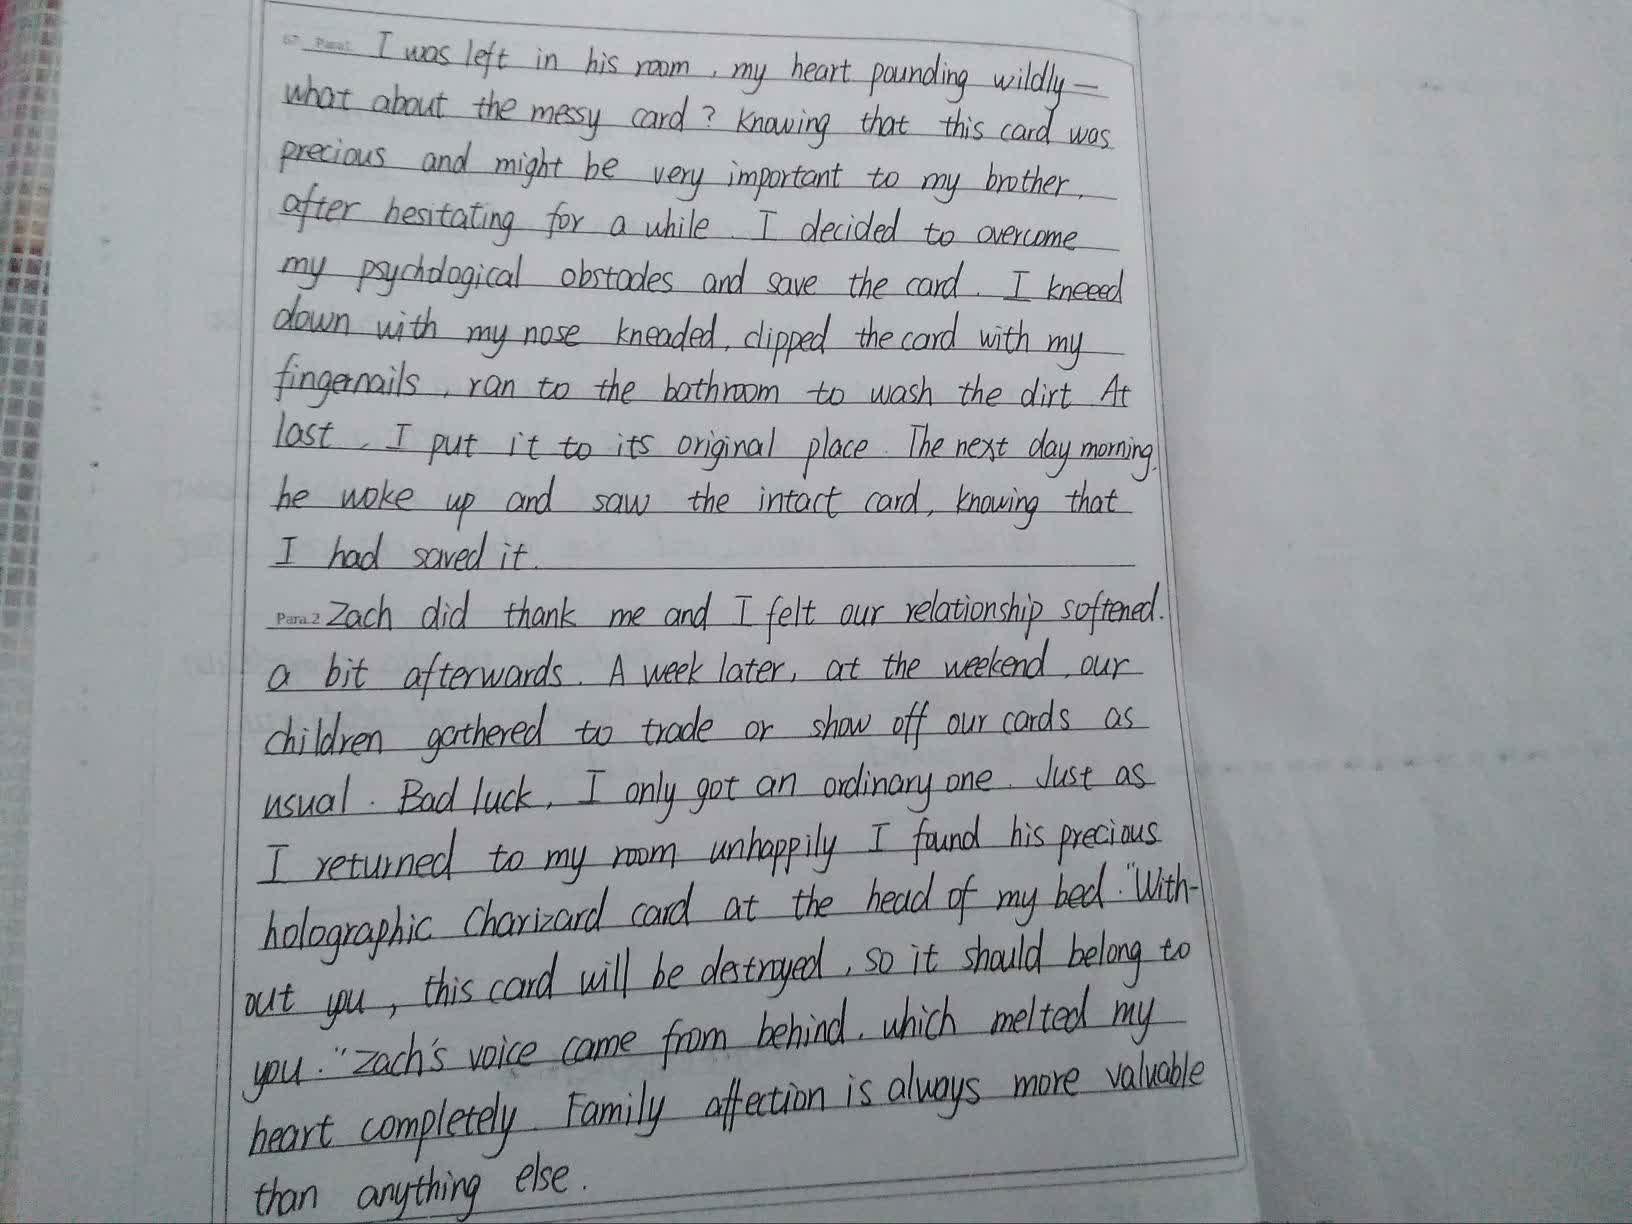 Para1 I was left in his room, my heart pounding wildly —
what about the messy card? Knowing that this card was
precious and might be very important to my brother,
after hesitating for a while. I decided to overcome
my psychological obstacles and save the card. I kneeed
down with my nose kneaded, clipped the card with my
fingernails, ran to the bathroom to wash the dirt At
last, I put it to its original place. The next day morning,
he woke up and saw the intact card, knowing that
I had saved it.
Para.2 Zach did thank me and I felt our relationship softened.
a bit afterwards. A week later, at the weekend, our
children gathered to trade or show off our cards as
usual. Bad luck, I only got an ordinary one. Just as
I returned to my room unhappily I found his precious
holographic Charizard card at the head of my bed. "With-
out you, this card will be destroyed, so it should belong to
you." Zach's voice came from behind, which melted my
heart completely. Family affection is always more valuable
than anything else.